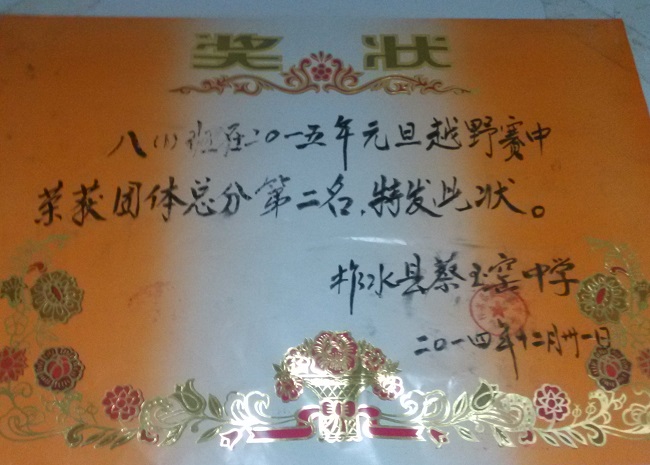 奖状
八(1)班在二〇一五年元旦越野赛中
荣获团体总分第二名,特发此状。
柞水县蔡玉窑中学
二〇一四年十二月卅一日